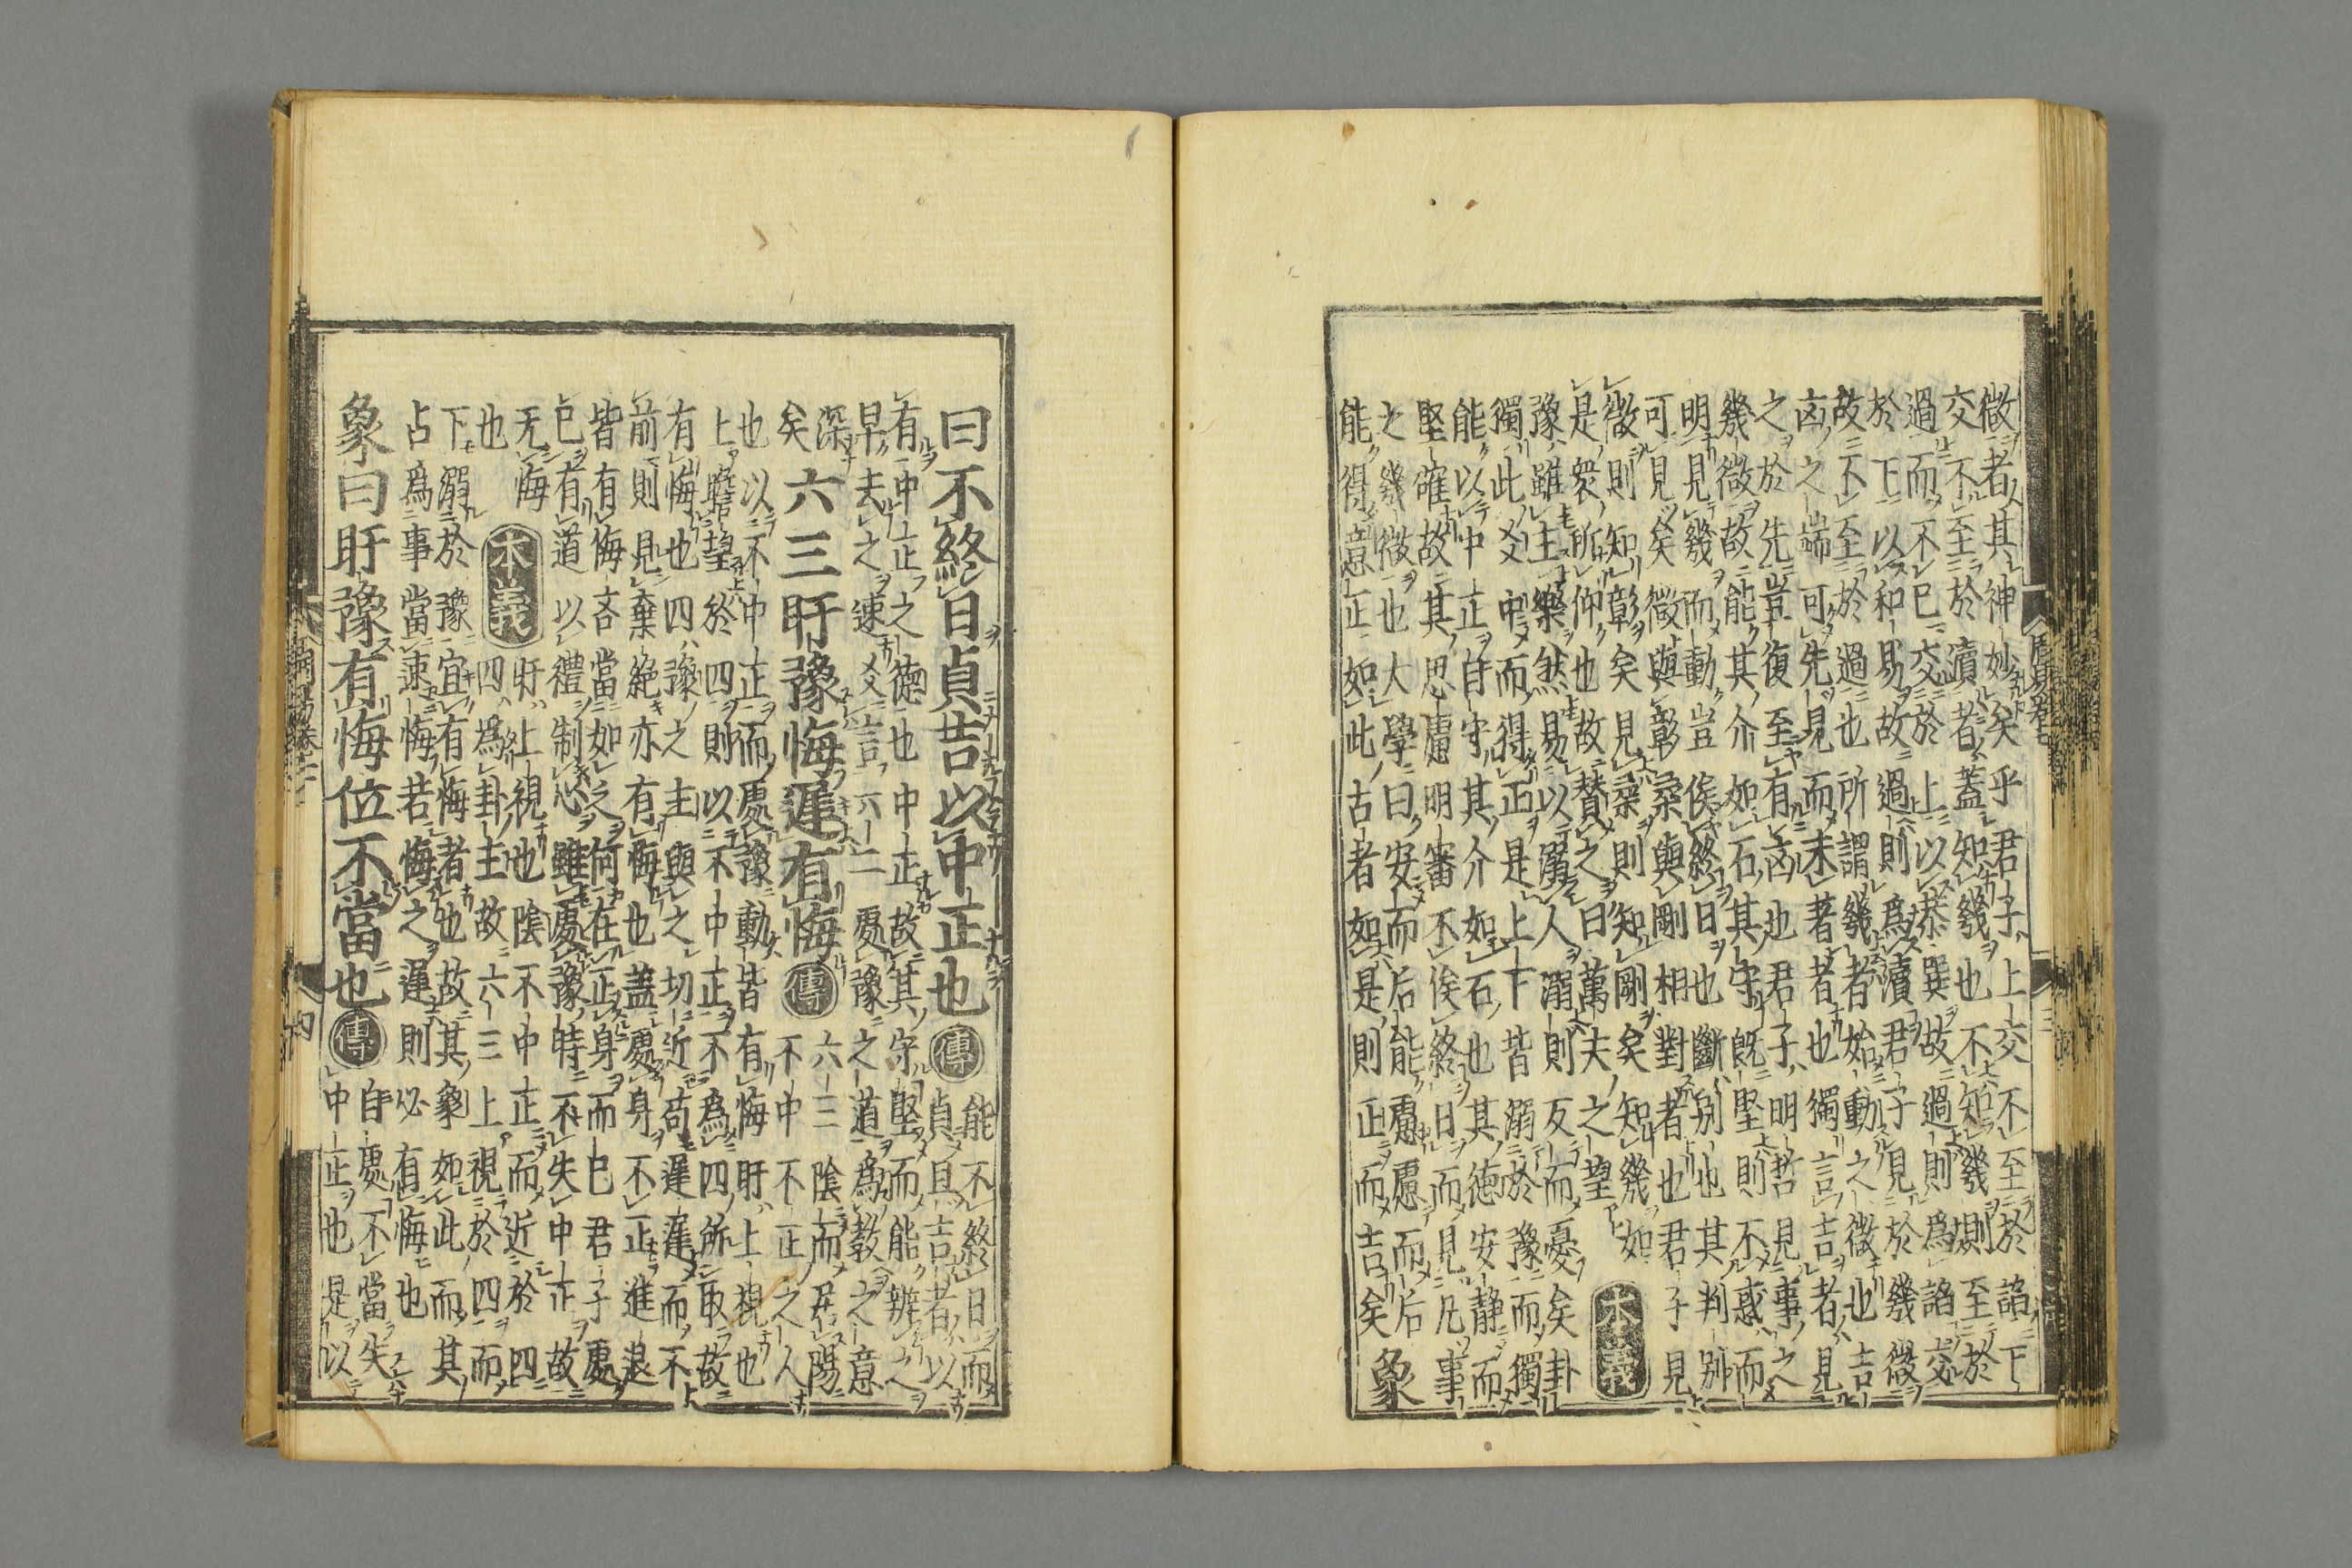 微者其神妙矣乎君子上交不至於諂下
交不至於瀆者蓋知幾也不知幾則至於
過而不已交於上以恭巽故過則爲諂交
於下以和易故過則爲瀆君子見於幾微
故不至於過也所謂幾者始動之微也吉
凶之端可先見而未著者也獨言吉者見
之於先豈復至有凶也君子明哲見事之
幾微故能其介如石其守既堅則不惑而
明見幾而動豈俟終日也斷別也其判別
可見矣微與彰柔與剛相對者也君子見
微則知彰矣見柔則知剛矣知幾如
是衆所仰也故贊之曰萬夫之望
本義
豫雖主樂然易以溺人溺則反而憂矣卦
獨此爻中而得正是上下皆溺於豫而獨
能以中正自守其介如石也其德安静而
堅確故其思慮明審不俟終日而見凡事
之幾微也大學曰安而后能慮慮而后
能得意正如此古者如是則正而吉矣
象
曰不終日貞吉以中正也傳
能不終日而
貞且吉者以
有中正之德也中正故其守堅而能辨之
早去之速爻言六二處豫之道爲教之意
深矣
六三盱豫悔遲有悔傳
六三陰而居陽
不中不正之人
也以不中正而處豫動皆有悔盱上視也
上瞻望於四則以不中正不爲四所取故
有悔也四豫之主與之切近苟遲遲而不
前則見棄絶亦有悔也蓋處身不正進退
皆有悔吝當如之何在正身而已君子處
已有道以禮制心雖處豫時不失中正故
无悔也
本義
盱上視也陰不中正而近於四
四爲卦主故六三上視於四而
下溺於豫宜有悔者也故其象如此而其
占爲事當速悔若悔之遲則必有悔也
象曰盱豫有悔位不當也傳
自處不當失
中正也是以